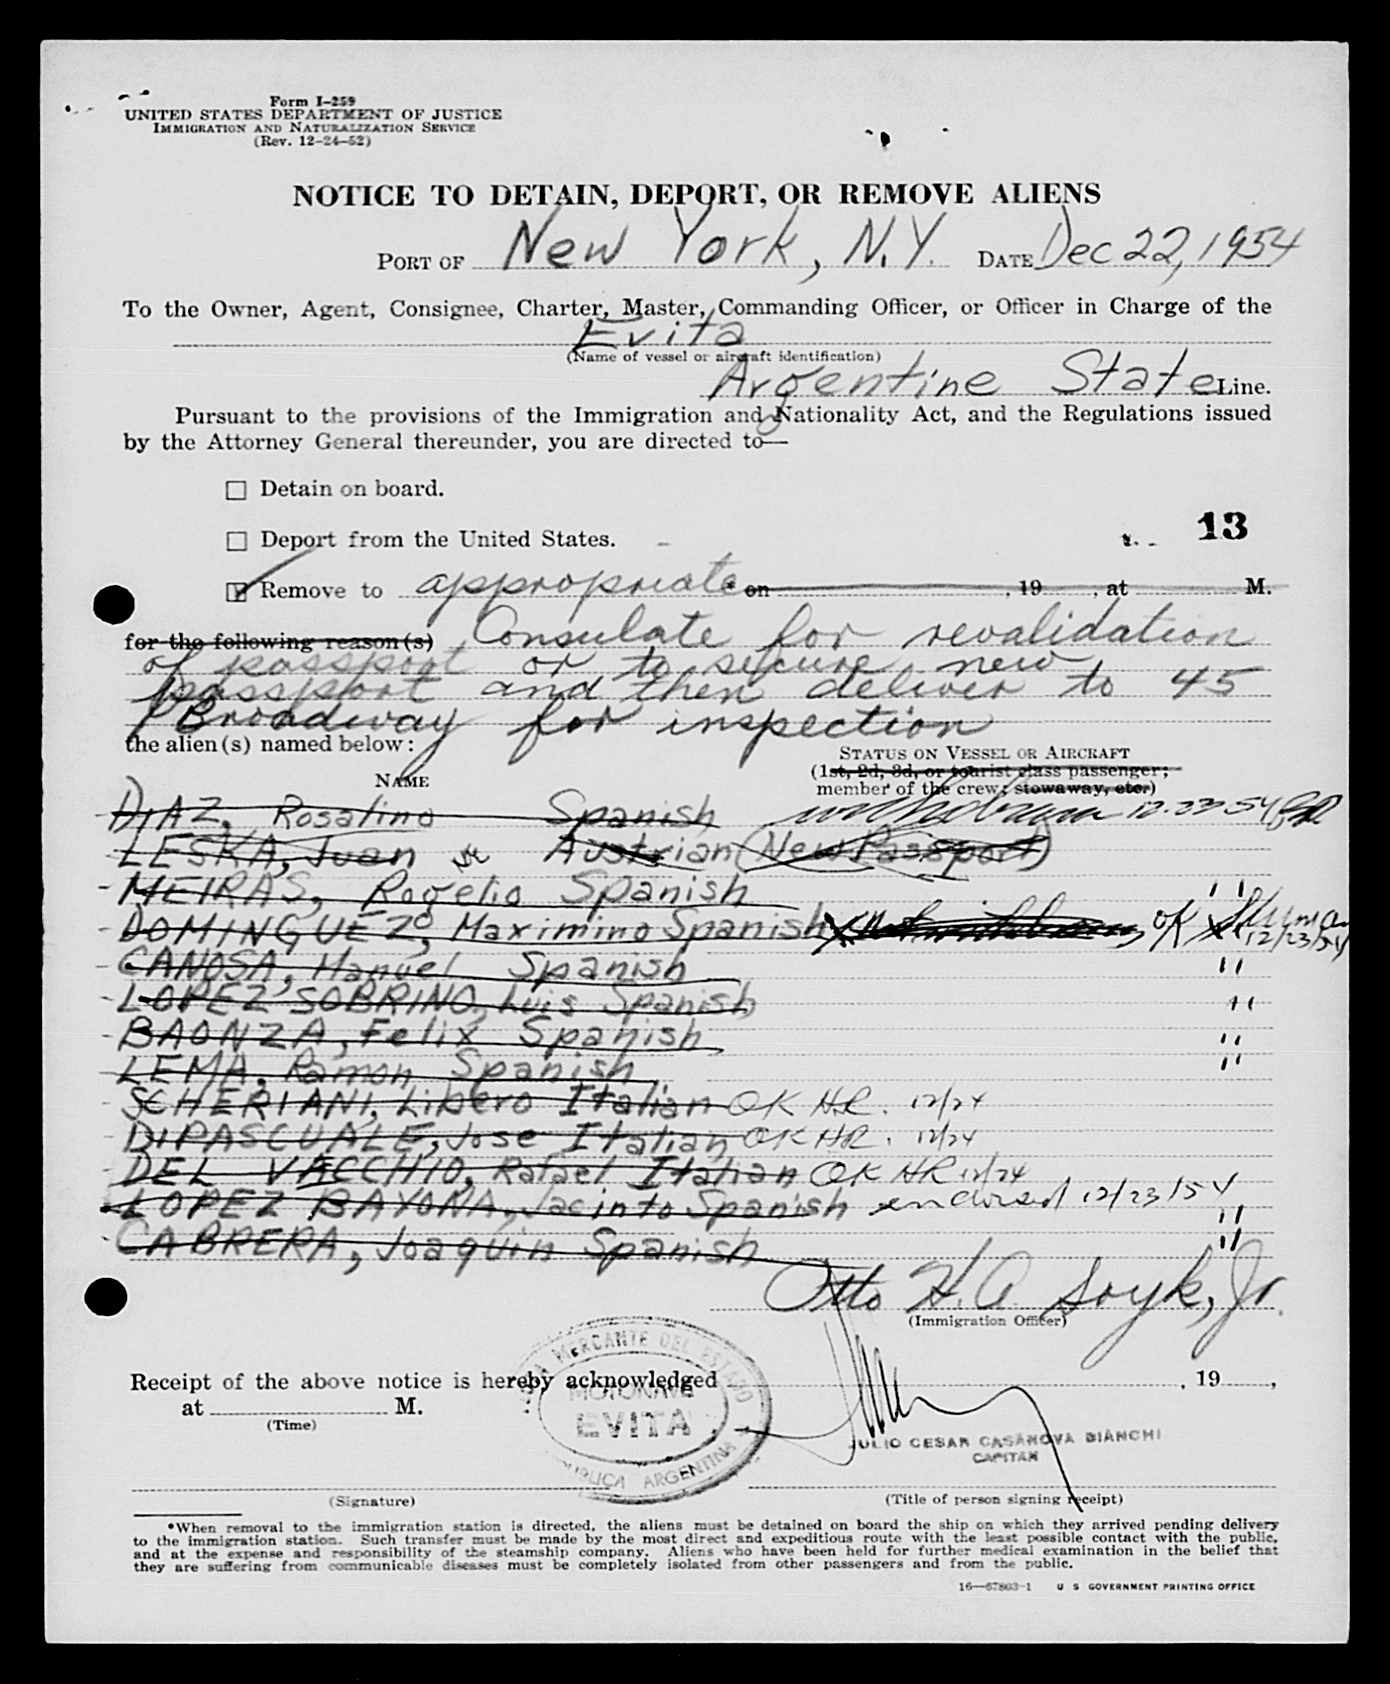 Form I-259
UNITED STATES DEPARTMENT OF JUSTICE
IMMIGRATION AND NATURALIZATION SERVICE
(Rev. 12-24-52)
NOTICE TO DETAIN, DEPORT, OR REMOVE ALIENS
PORT OF New York, N.Y. DATE Dec 22, 1954
To the Owner, Agent, Consignee, Charter, Master, Commanding Officer, or Officer in Charge of the
Evita
(Name of vessel or aircraft identification)
Argentine State Line.
Pursuant to the provisions of the Immigration and Nationality Act, and the Regulations issued
by the Attorney General thereunder, you are directed to—
Detain on board.
Deport from the United States.
13
Remove to appropriate * on , 19 , at M.
for the following reason(s) Consulate for revalidation
of passport or to secure new
passport and then deliver to 45
Broadway for inspection
the alien(s) named below:
STATUS ON VESSEL OR AIRCRAFT
(1st, 2d, 3d, or tourist class passenger;
NAME
member of the crew; stowaway, etc.)
DIAZ, Rosalino Spanish 12-23-54
LESKA, Juan Austrian (New Passport)
MEIRAS, Rogelio Spanish "
DOMINGUEZ, Maximino Spanish OK 12/23/54
CANOSA, Manuel Spanish "
LOPEZ SOBRINO, Luis Spanish "
BAONZA, Felix Spanish "
LEMA, Ramon Spanish "
SCHERIANI, Libero Italian OK HR. 12/24
DIPASCUALE, Jose Italian OK HR. 12/24
DEL VACCHIO, Rafael Italian OK HR 12/24
LOPEZ BAYONA, Jacinto Spanish endorsed 12/23/54
CABRERA, Joaquin Spanish " "
Otto H.A. Soyk, Jr.
(Immigration Officer)
MERCANTE DEL ESTADO
Receipt of the above notice is hereby acknowledged , 19 ,
MOTONAVE
at M.
EVITA
(Time)
JULIO CESAR CASANOVA BIANCHI
CAPITAN
ARGENTINA
(Signature)
(Title of person signing receipt)
*When removal to the immigration station is directed, the aliens must be detained on board the ship on which they arrived pending delivery
to the immigration station. Such transfer must be made by the most direct and expeditious route with the least possible contact with the public,
and at the expense and responsibility of the steamship company. Aliens who have been held for further medical examination in the belief that
they are suffering from communicable diseases must be completely isolated from other passengers and from the public.
16—67803-1 U S GOVERNMENT PRINTING OFFICE